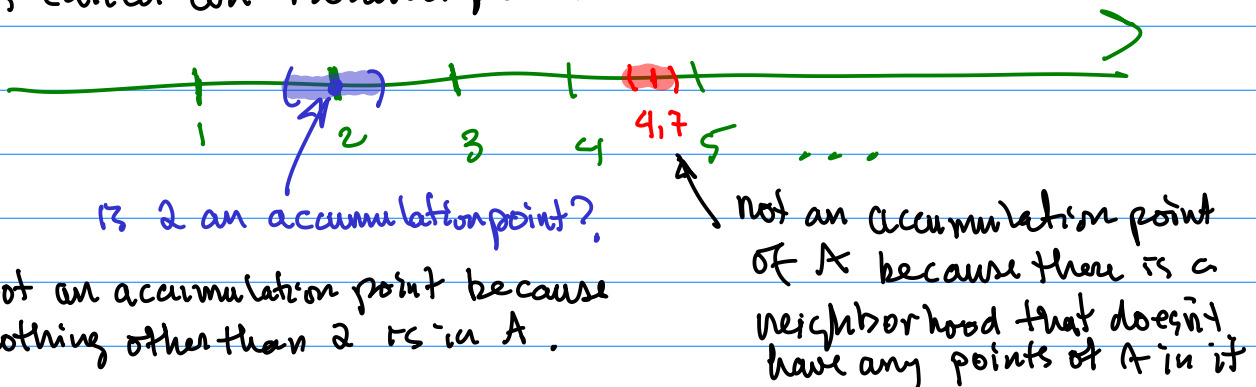 1 2 3 4 4,7 5 ...
is 2 an accumulation point?
ot an accumulation point because
othing other than 2 is in A.
not an accumulation point
of A because there is a
neighborhood that doesn't
have any points of A in it